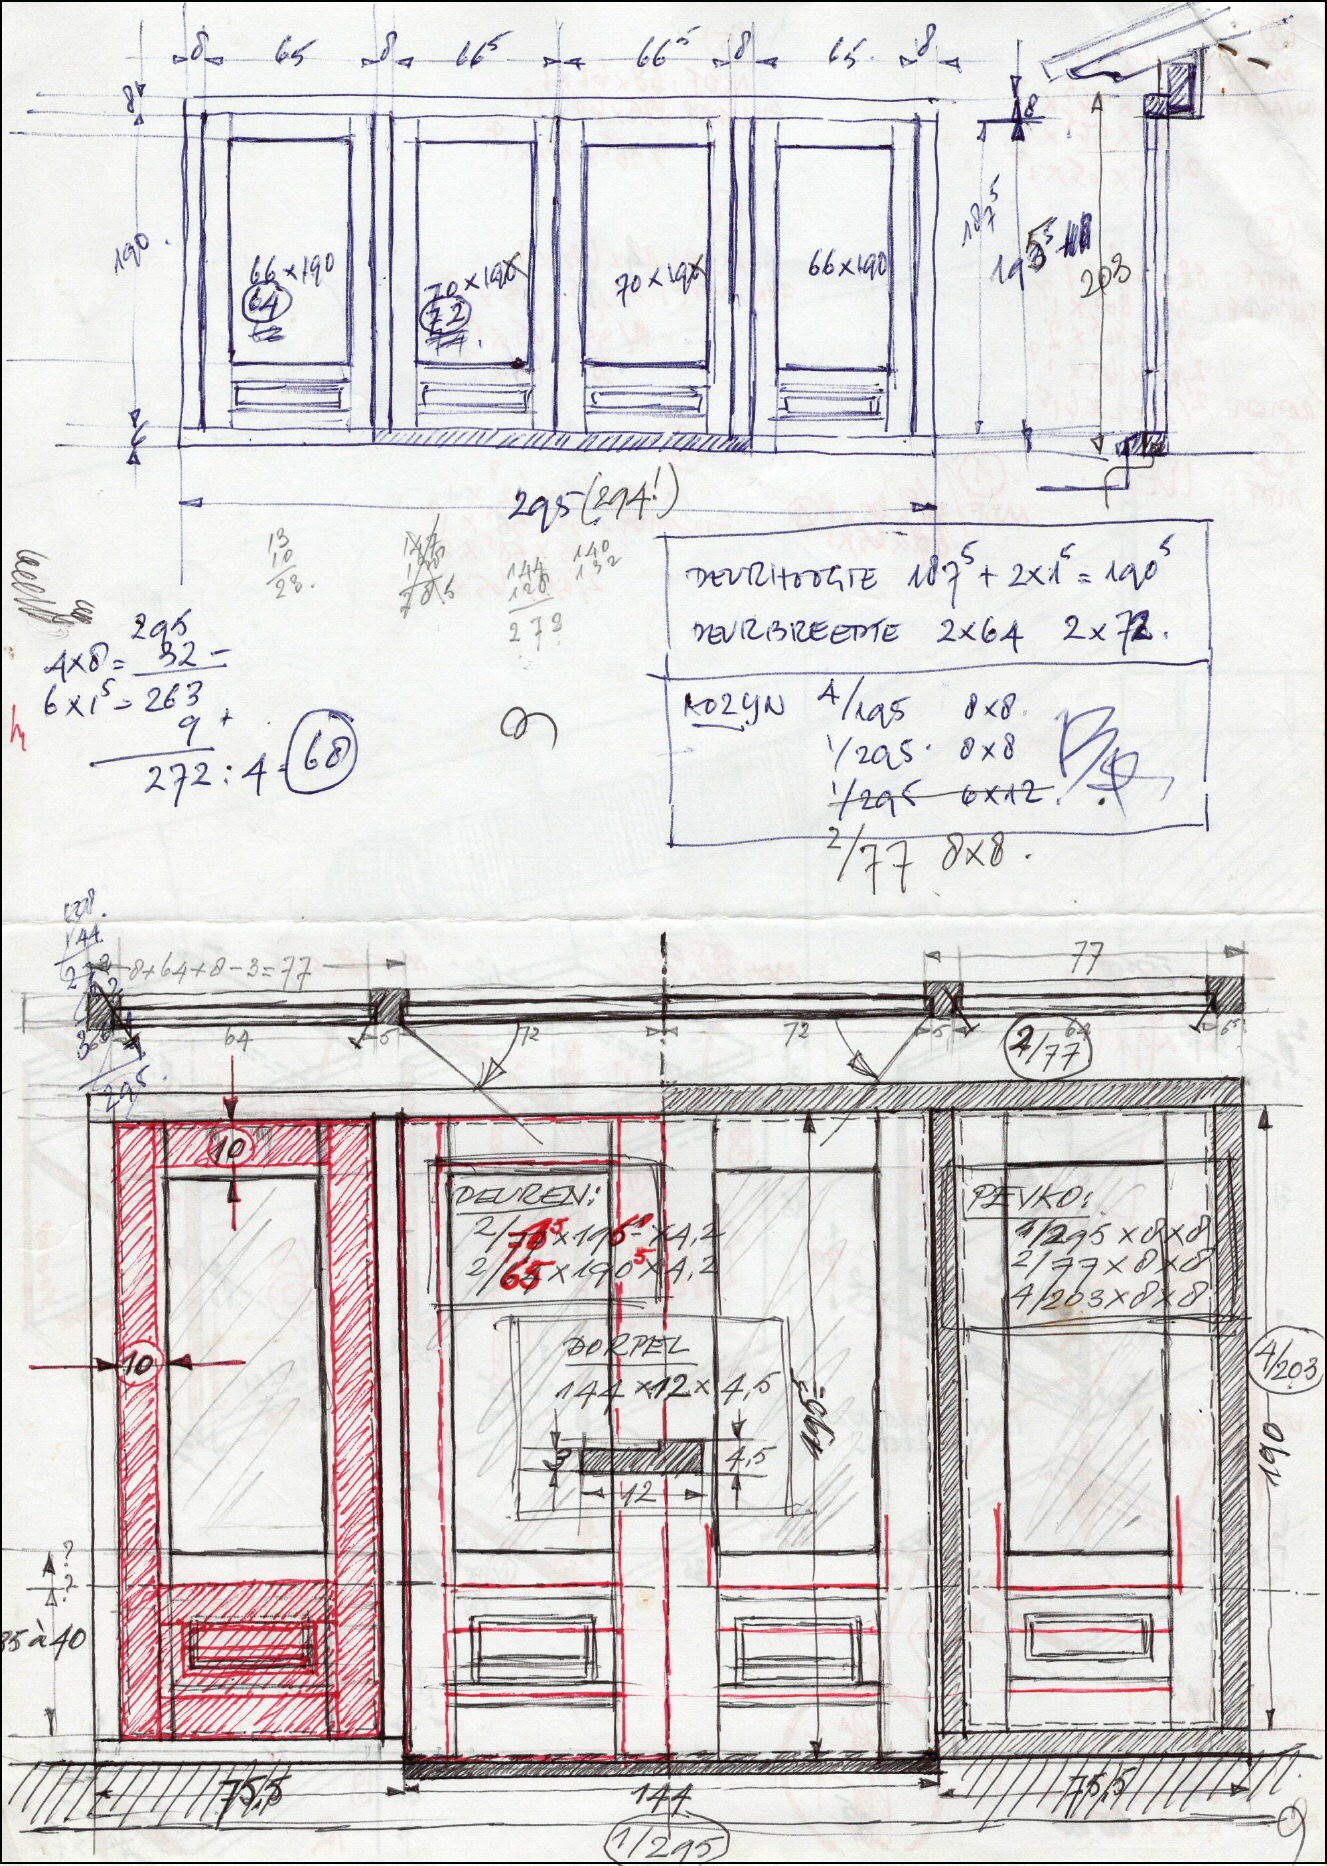 8 65 8 66⁵ 66⁵ 8 65 8
8
8
190
187⁵
203
66×190
64
70×190
72
70×19
66×190
6
295 (294!)
13
10
23.
144
128
272
140
132
295
4×8= 32 -
6×1⁵= 263
9 +
272 : 4 = 68
DEURHOOGTE 187⁵ + 2×1⁵ = 190⁵
DEURBREEDTE 2×64 2×72.
KOZYN 4/195 8×8.
1/295. 8×8
1/295 6×12.
2/77 8×8.
144
8+64+8-3=77
77
64 5 72 72 5 64 6⁵
2/77
295.
10
DEUREN:
2/ ×196⁵×4,2
2/65×190⁵×4,2
PEVKO:
1/295×8×8
2/77×8×8
4/203×8×8
DORPEL
144×12×4,5
10
3 4,5
12
195⁵
4/203
190
?
?
35 à 40
75,5
144
75,5
1/295
9